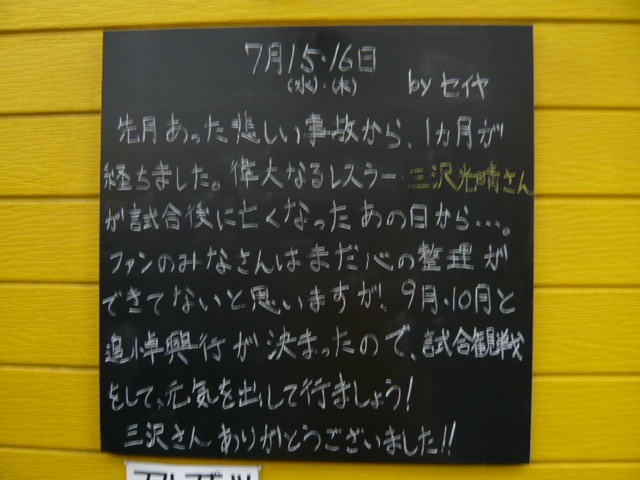 7月15・16日
(水)・(木)
by セイヤ
先月あった悲しい事故から、1ヵ月が
経ちました。偉大なるレスラー 三沢光晴さん
が試合後に亡くなったあの日から…。
ファンのみなさんはまだ心の整理が
できてないと思いますが、9月・10月と
追悼興行が決まったので、試合観戦
をして、元気を出して行きましょう!
三沢さんありがとうございました!!